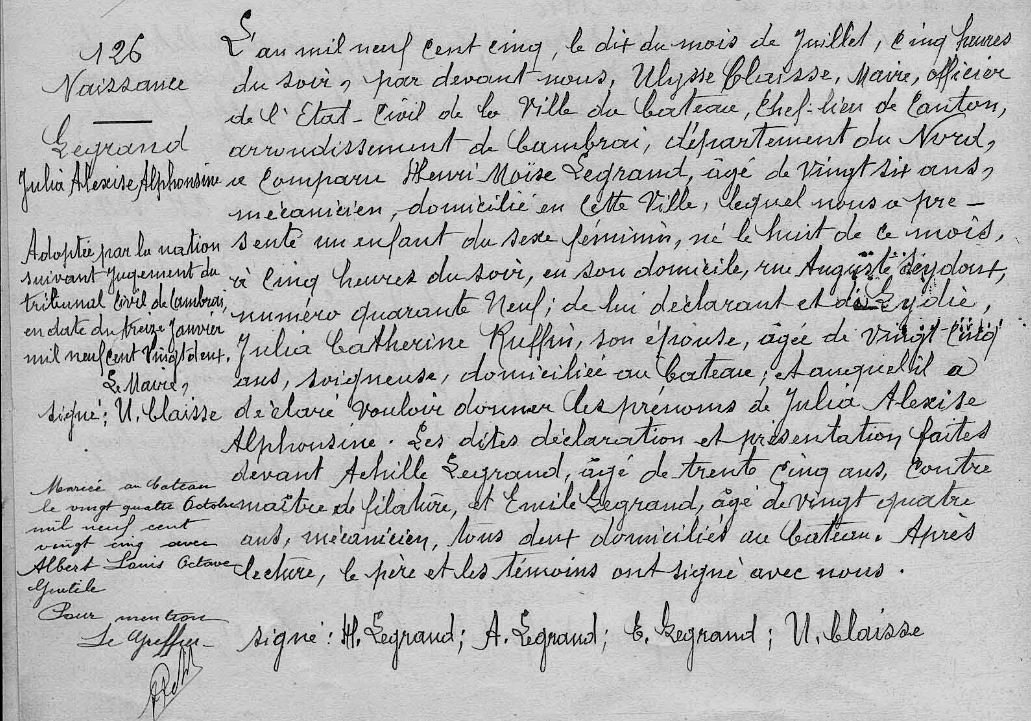 126
Naissance
Legrand
Julia Alexise Alphonsine
Adoptée par la nation
suivant Jugement du
tribunal Civil de Cambrai,
en date du treize Janvier
mil neuf cent Vingt deux.
Le Maire,
signé: U. Claisse
Mariée au Cateau
le vingt quatre Octobre
mil neuf cent
vingt cinq avec
Albert Louis Octave
Pour mention
Le Greffier
L'an mil neuf cent cinq, le dix du mois de Juillet, cinq heures
du soir, par devant nous, Ulysse Claisse, Maire, officier
de l'Etat-Civil de la Ville du Cateau, Chef-lieu de Canton,
arrondissement de Cambrai, département du Nord,
a comparu Henri Moïse Legrand, âgé de Vingt six ans,
mécanicien, domicilié en cette Ville, lequel nous a pré-
senté un enfant du sexe féminin, né le huit de ce mois,
à cinq heures du soir, en son domicile, rue Auguste Seydoux,
numéro quarante Neuf; de lui déclarant et de Lydie,
Julia Catherine Ruffin, son épouse, âgée de Vingt-Cinq
ans, soigneuse, domiciliée au Cateau; et auquel il a
déclaré vouloir donner les prénoms de Julia Alexise
Alphonsine. Les dites déclaration et présentation faites
devant Achille Legrand, âgé de trente cinq ans, contre
maître de filature, et Emile Legrand, âgé de vingt quatre
ans, mécanicien, tous deux domiciliés au Cateau. Après
lecture, le père et les témoins ont signé avec nous.
signé: H. Legrand; A. Legrand; E. Legrand; U. Claisse